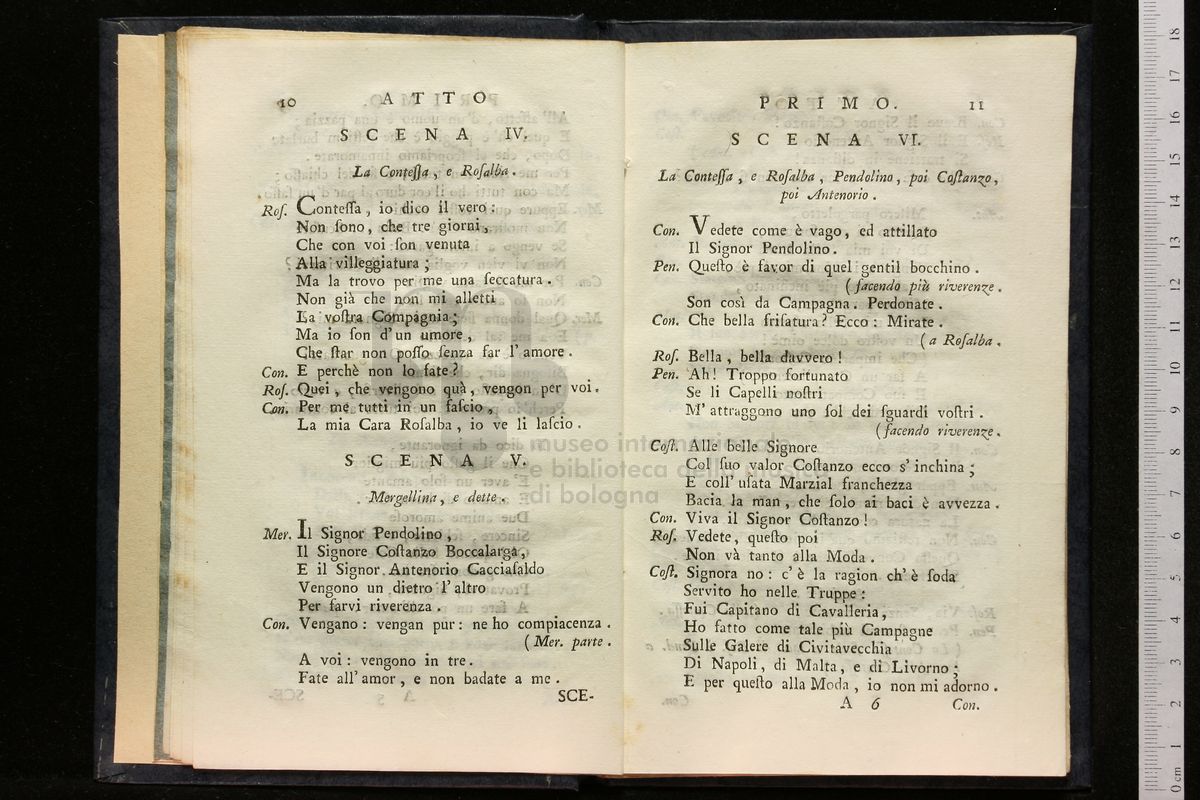 10 ATTO
SCENA IV.
La Conteſſa, e Roſalba.
Roſ. Conteſſa, io dico il vero:
Non ſono, che tre giorni,
Che con voi ſon venuta
Alla villeggiatura;
Ma la trovo per me una ſeccatura.
Non già che non mi alletti
La voſtra Compagnia;
Ma io ſon d'un umore,
Che ſtar non poſſo ſenza far l'amore.
Con. E perchè non lo fate?
Roſ. Quei, che vengono quà, vengon per voi.
Con. Per me tutti in un faſcio,
La mia Cara Roſalba, io ve li laſcio.
SCENA V.
Mergellina, e dette.
Mer. Il Signor Pendolino,
Il Signore Coſtanzo Boccalarga,
E il Signor Antenorio Cacciaſaldo
Vengono un dietro l'altro
Per farvi riverenza.
Con. Vengano: vengan pur: ne ho compiacenza.
(Mer. parte.
A voi: vengono in tre.
Fate all'amor, e non badate a me.
SCE-
PRIMO. 11
SCENA VI.
La Conteſſa, e Roſalba, Pendolino, poi Coſtanzo,
poi Antenorio.
Con. Vedete come è vago, ed attillato
Il Signor Pendolino.
Pen. Queſto è favor di quel gentil bocchino.
(facendo più riverenze.
Son così da Campagna. Perdonate.
Con. Che bella friſatura? Ecco: Mirate.
(a Roſalba.
Roſ. Bella, bella davvero!
Pen. Ah! Troppo fortunato
Se li Capelli noſtri
M'attraggono uno ſol dei ſguardi voſtri.
(facendo riverenze.
Coſt. Alle belle Signore
Col ſuo valor Coſtanzo ecco s'inchina;
E coll'uſata Marzial franchezza
Bacia la man, che ſolo ai baci è avvezza.
Con. Viva il Signor Coſtanzo!
Roſ. Vedete, queſto poi
Non và tanto alla Moda.
Coſt. Signora no: c'è la ragion ch'è ſoda
Servito ho nelle Truppe:
Fui Capitano di Cavalleria,
Ho fatto come tale più Campagne
Sulle Galere di Civitavecchia
Di Napoli, di Malta, e di Livorno;
E per queſto alla Moda, io non mi adorno.
A 6 Con.
museo internazionale
e biblioteca della musica
di bologna
0 cm 1 2 3 4 5 6 7 8 9 10 11 12 13 14 15 16 17 18